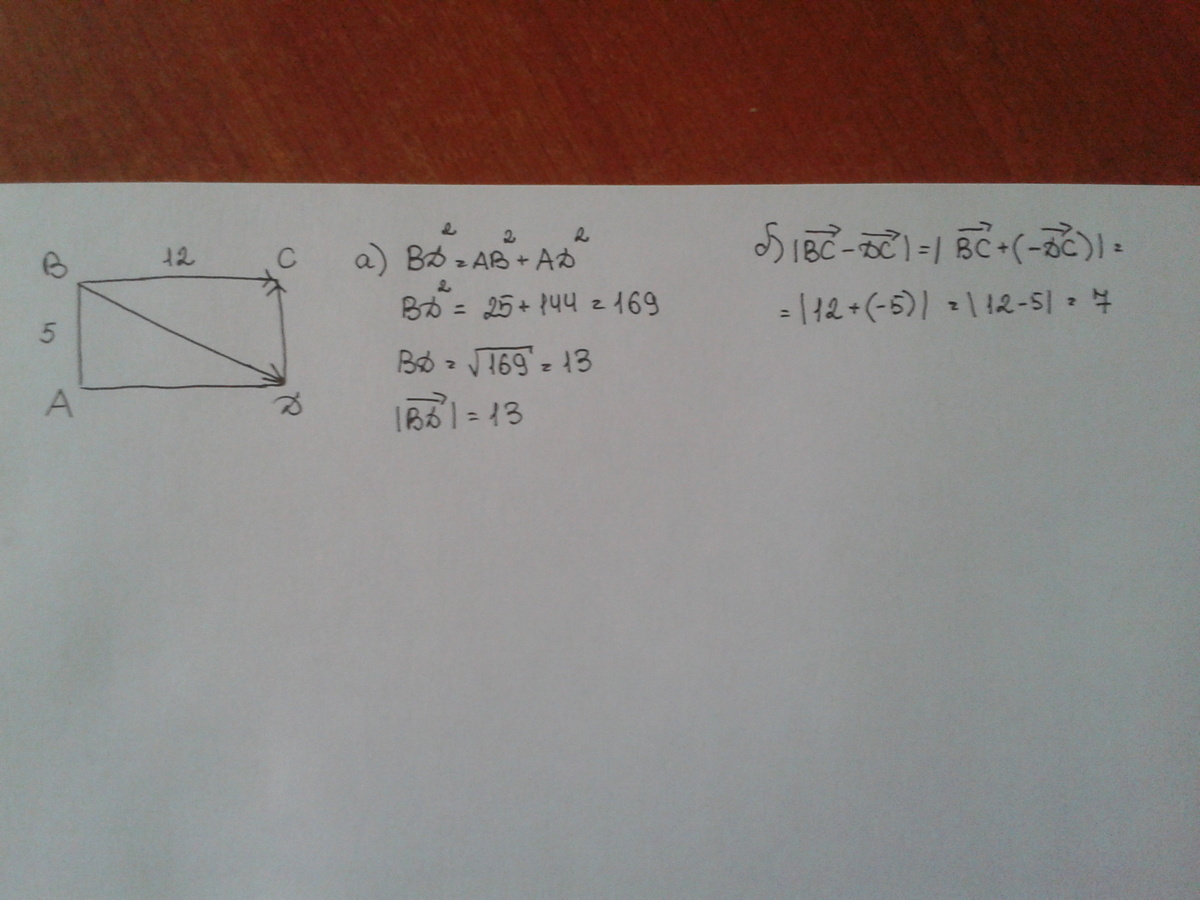 B 12 C
5
A D
а) BD² = AB² + AD²
BD² = 25 + 144 = 169
BD = √169 = 13
|BD→| = 13
б) |BC→ - DC→| = | BC→ + (-DC→)| =
= |12 + (-5)| = |12 - 5| = 7